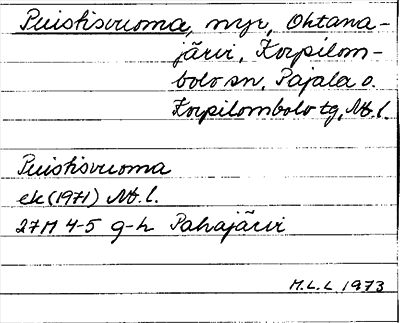 Puistisvuoma, myr, Ohtana-
järvi, Korpilom-
bolo sn, Pajala o.
Korpilombolo tg, Nb. l.
Puistisvuoma
ek (1971) Nb. l.
27M 4-5 g-h Pahajärvi
M.L.L 1973